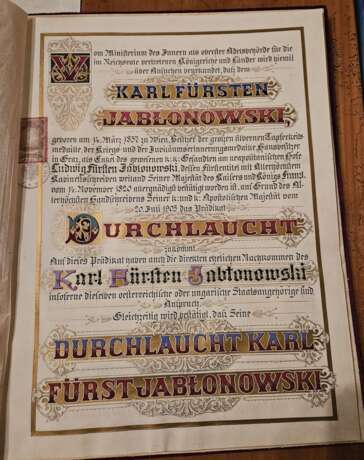 Vom Ministerium des Innern als oberster Adelsbehörde für die
im Reichsrate vertretenen Königreiche und Länder wird hiemit
über Ansuchen beurkundet, daß dem
KARL FÜRSTEN
JABŁONOWSKI,
geboren am 14. März 1857 in Wien, Besitzer der großen silbernen Tapferkeits-
medaille, der Kriegs und der Jubiläumserinnerungsmedaille Hausbesitzer
in Graz, als Enkel des gewesenen k: k: Gesandten am neapolitanischen Hofe
Ludwig Fürsten Jabłonowski, dessen Fürstentitel mit Allerhöchstem
Kabinettschreiben weiland Seiner Majestät des Kaisers und Königs Franz I.
vom 14. November 1820 allergnädigst bestätigt worden ist, auf Grund des Al-
lerhöchsten Handschreibens Seiner k: und k: Apostolischen Majestät vom
20. Juni 1905 das Prädikat
DURCHLAUCHT
zukommt.
Auf dieses Prädikat haben auch die direkten ehelichen Nachkommen des
Karl Fürsten Jabłonowski
insoferne dieselben oesterreichische oder ungarische Staatsangehörige sind
Anspruch.
Gleichzeitig wird bestätigt, daß Seine
DURCHLAUCHT KARL
FÜRST JABŁONOWSKI